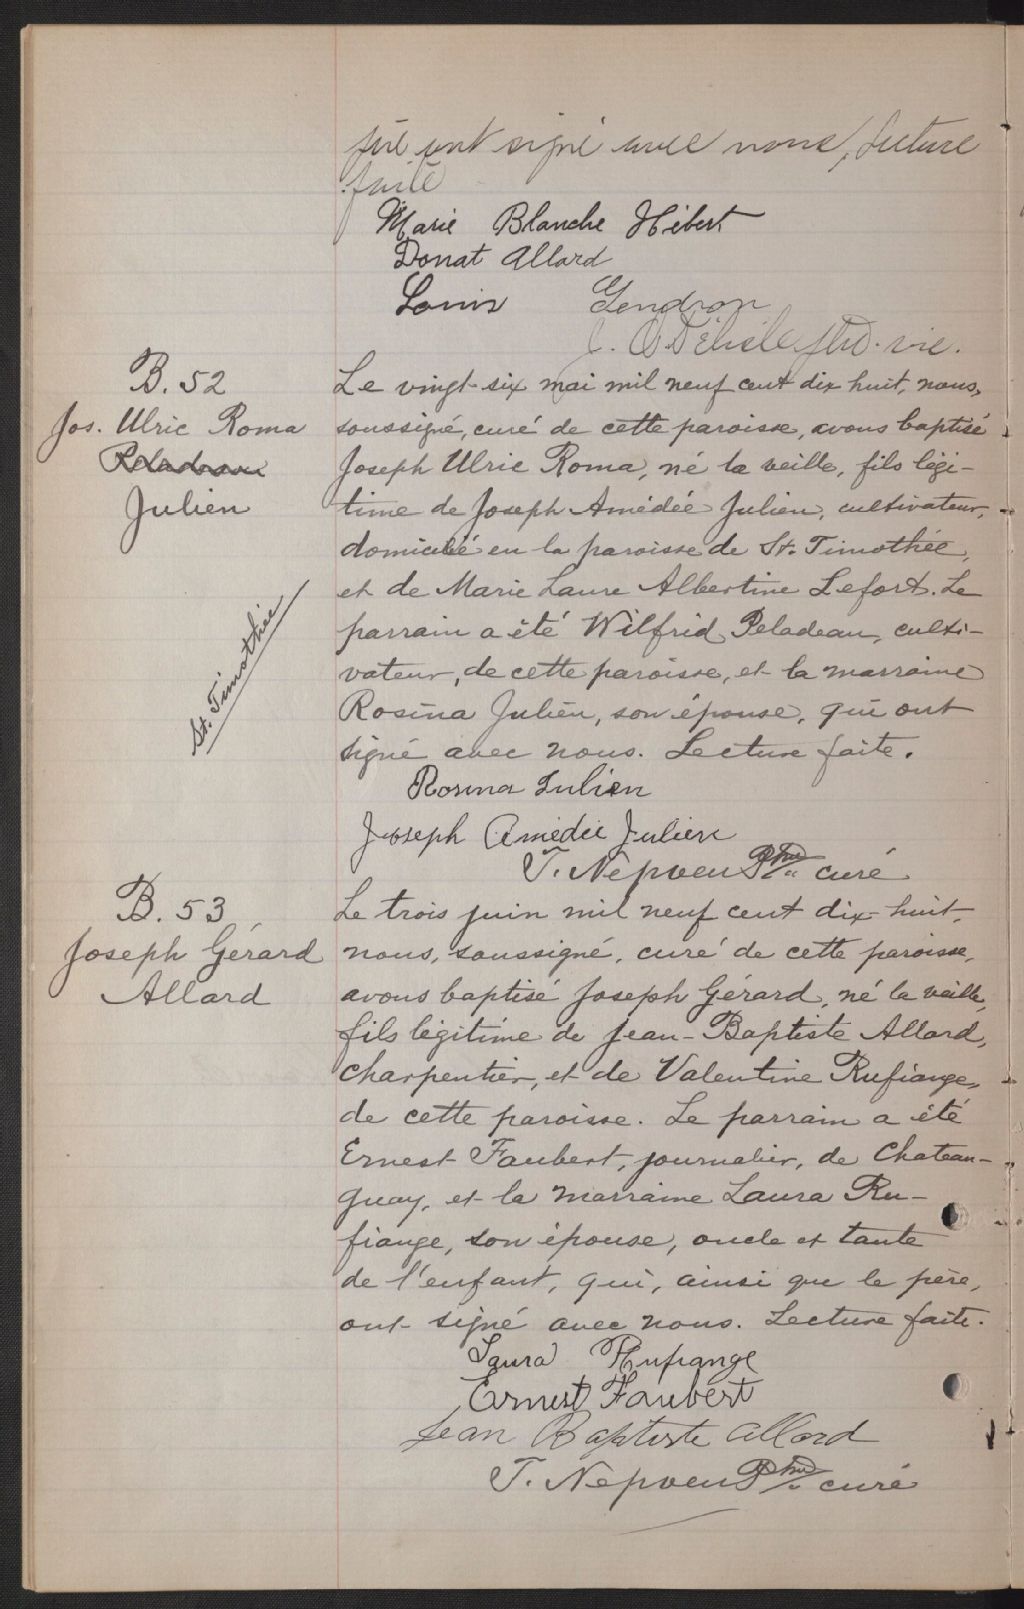 père ont signé avec nous, lecture
faite
Marie Blanche Hébert
Donat Allard
Louis Gendron
J. O. Delisle ptre. vic.
B. 52
Jos. Ulric Roma
Peladeau
Julien
St. Timothée
Le vingt-six mai mil neuf cent dix huit, nous,
soussigné, curé de cette paroisse, avons baptisé
Joseph Ulric Roma, né la veille, fils légi-
time de Joseph Amédée Julien, cultivateur,
domicilié en la paroisse de St. Timothée,
et de Marie Laure Albertine Lefort. Le
parrain a été Wilfrid Peladeau, culti-
vateur, de cette paroisse, et la marraine
Rosina Julien, son épouse, qui ont
signé avec nous. Lecture faite.
Rosina Julien
Joseph Amédée Julien
T. Nepveu Ptre curé
B. 53
Joseph Gérard
Allard
Le trois juin mil neuf cent dix-huit,
nous, soussigné, curé de cette paroisse,
avons baptisé Joseph Gérard, né la veille,
fils légitime de Jean-Baptiste Allard,
charpentier, et de Valentine Rufiange,
de cette paroisse. Le parrain a été
Ernest Faubert, journalier, de Chateau-
guay, et la marraine Laura Ru-
fiange, son épouse, oncle et tante
de l'enfant, qui, ainsi que le père,
ont signé avec nous. Lecture faite.
Laura Rufiange
Ernest Faubert
Jean Baptiste Allard
T. Nepveu Ptre curé